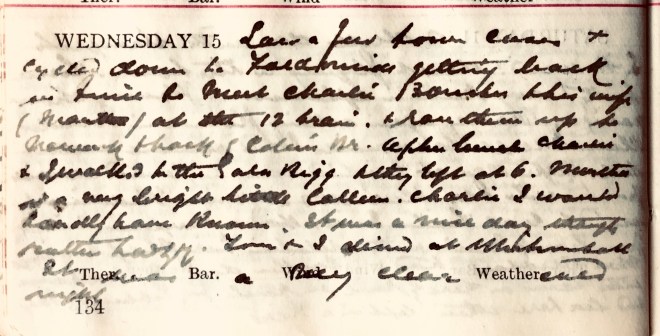 Ther. Bar. Wind Weather
WEDNESDAY 15 Saw a few town cases &
cycled down to getting back
in time to meet Charlie & his wife
(Martha) at the 12 train. & ran them up to
& back Br. After lunch Charlie
& I walked to the Rigg & they left at 6. Martha
is a very bright little Colleen. Charlie I would
hardly have known. It was a nice day though
rather . Tom & I dined at
It was a very clear
night
Ther. Bar. Wind Weather
134